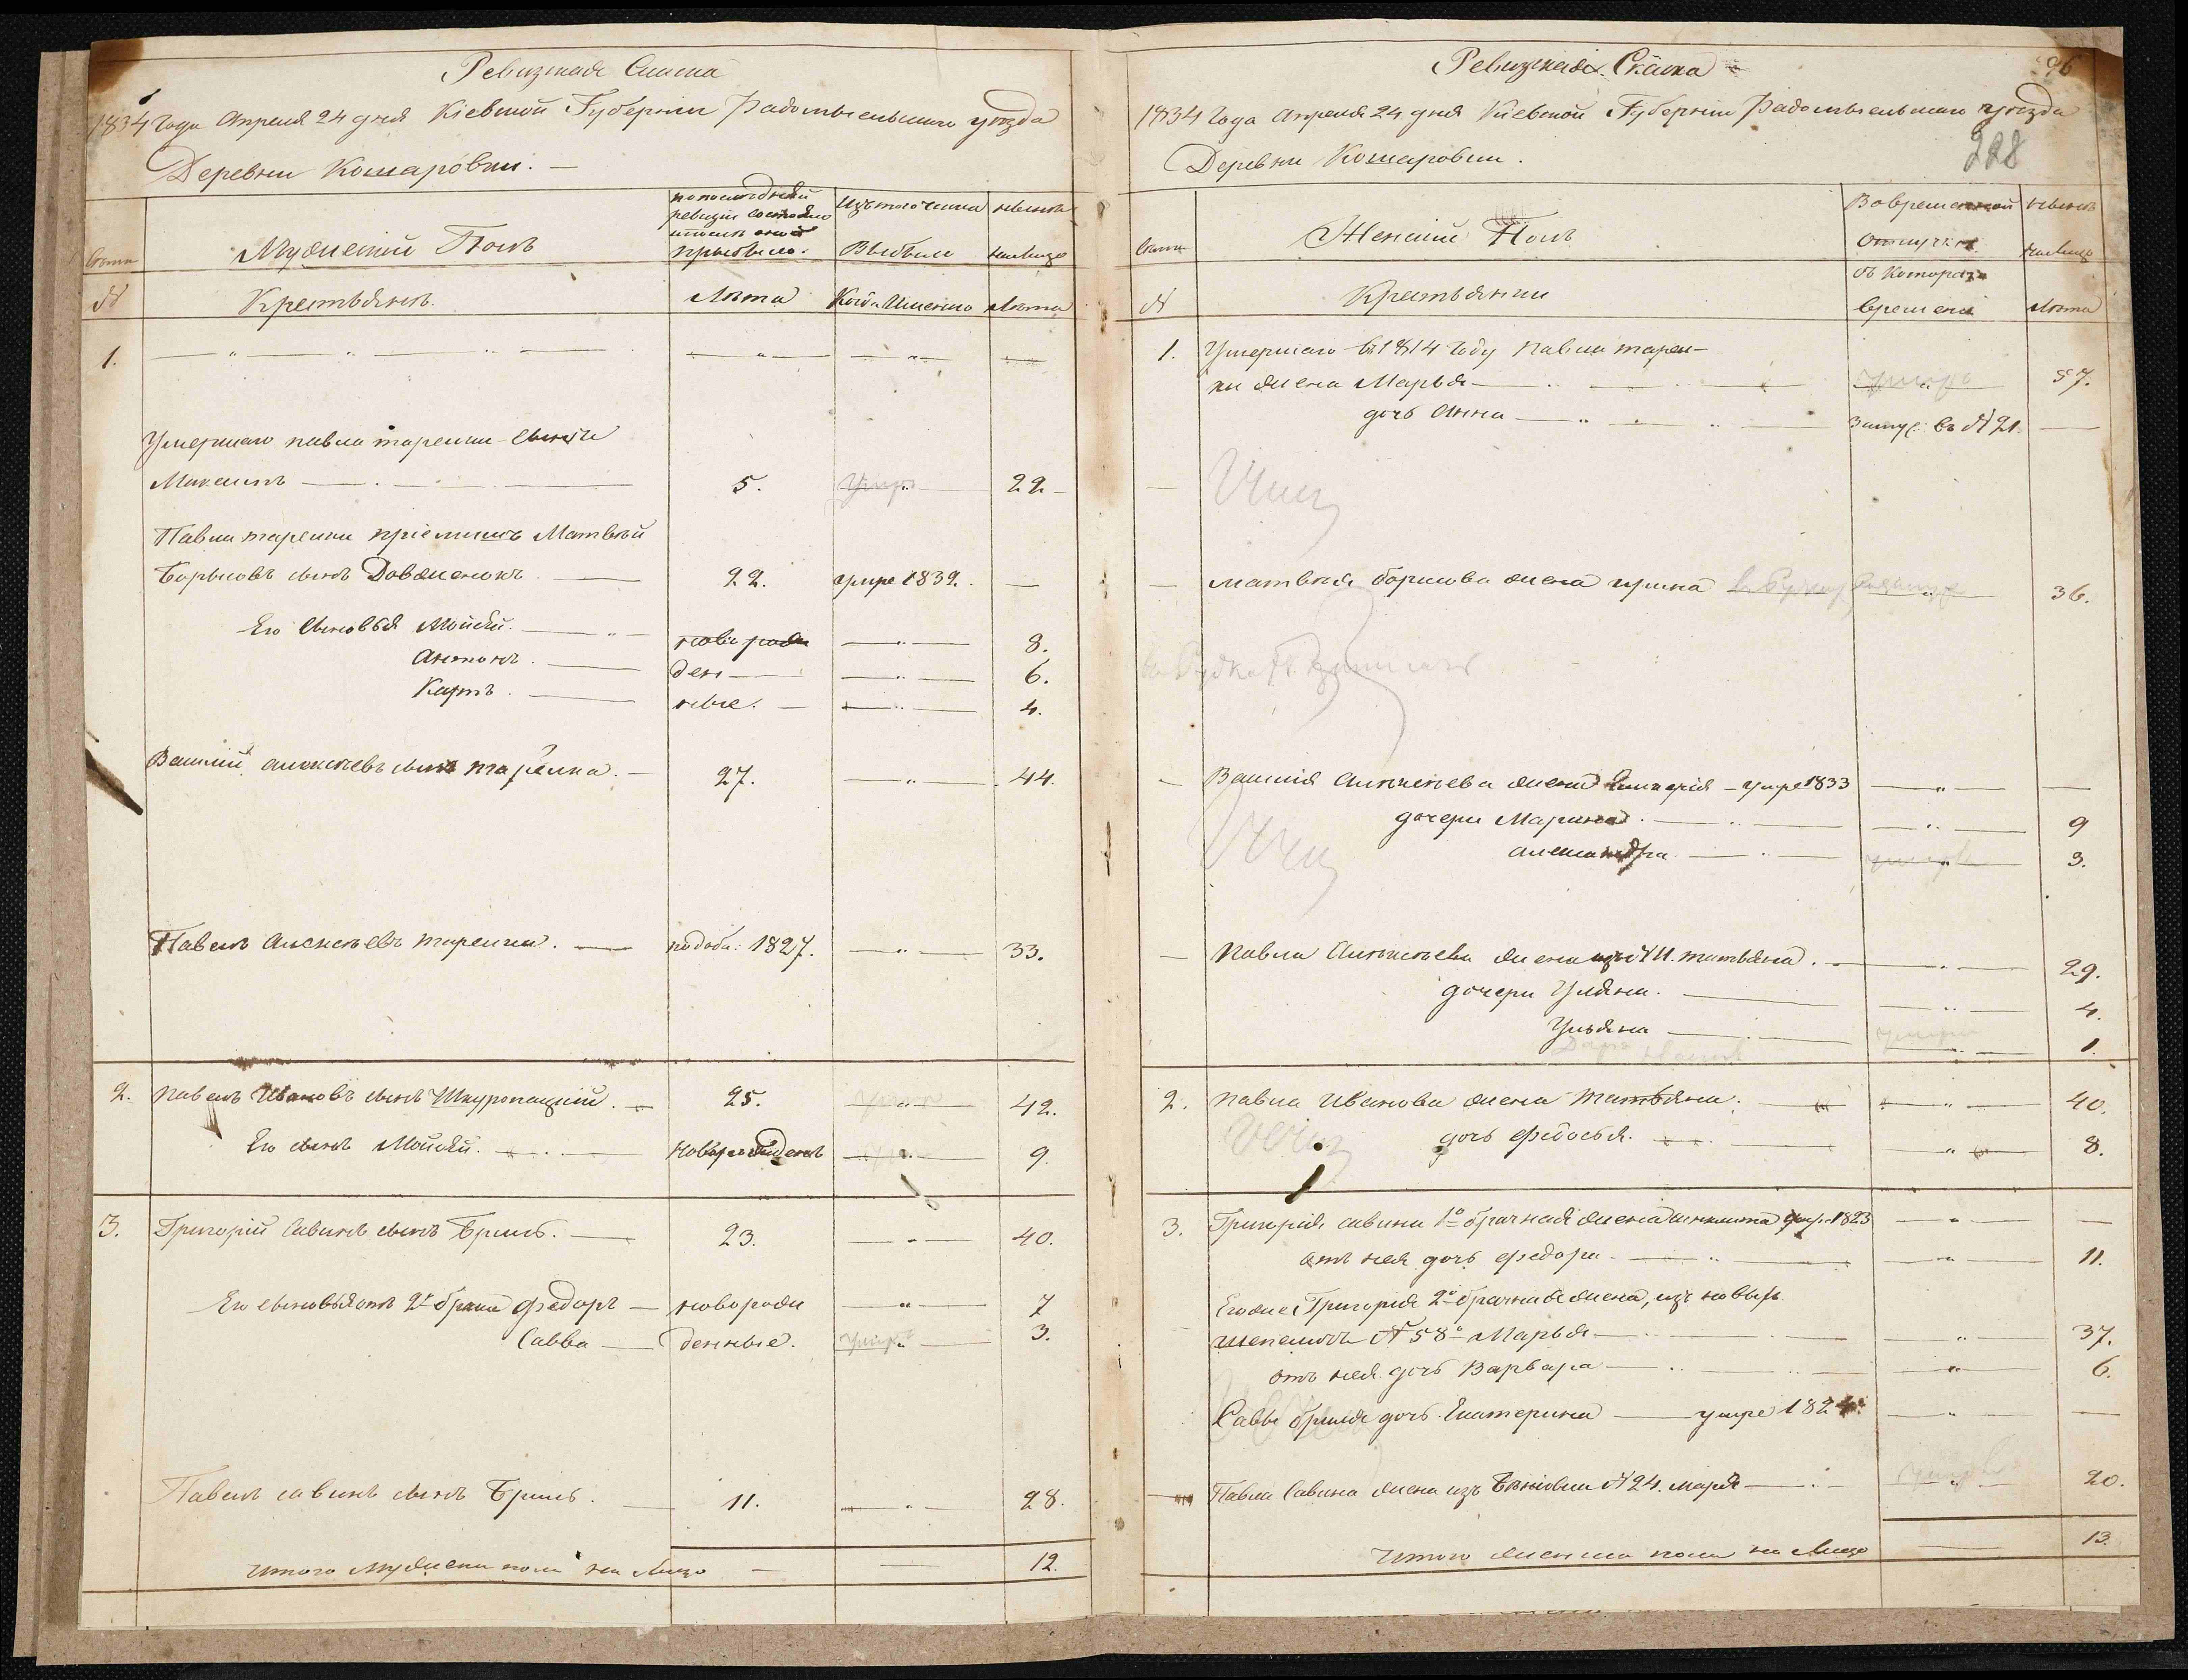 Ревизская Сказка
1834 Года Апреля 24 дня Кіевской Губерніи Радомысльскаго уѣзда
Деревни Комаровки.
по последней ревизіи состояло и после оной прибыло.
Изъ того числа Выбыло
ныне на лицо
Мужеский Полъ
№
Крестьяне
Лѣта
Когда Именно
Лѣта
1.
Умершаго павла таренки сынъ
Максимъ 5. умре 22
Павла таренки пріемышъ Матвѣй
Борысовъ сынъ Довженокъ 22. умре 1832. —
Его Сыновья Мойсѣй. новорож 8.
Антонъ. ден 6.
Карпъ. ные. 4.
Василий алексѣевъ сынъ таренка. 27. 44.
Павелъ Алексѣевъ таренка. 1827. 33.
2. Павелъ Ивановъ сынъ Шкуропацкий. 25. 42.
Его сынъ Мойсѣй. Новорожденъ 9.
3. Григорій Савинъ сынъ Бриль. 23. 40.
Его сыновья отъ 2й брака Федоръ новорож 7
Савва денные. умре 3.
Павелъ савинъ сынъ Бриль. 11. 28.
Итого мужеска пола на лицо 12.
Ревизская Сказка
96
1834 Года Апреля 24 дня Кіевской Губерніи Радомысльскаго уѣзда
228
Деревни Комаровки.
Женский Полъ
Во временной отлучке
ныне на лицо
№
Крестьянки
съ которого времени
Лѣта
1. Умершаго въ 1814 Году павла тарен-
ки жена Марья умре 57.
дочь Анна Замуж: въ № 21. —
— Матвѣя борисова жена ирина 36.
— Василія Алексѣева жена — умре 1833 —
дочери Марина. 9
александра. 3.
— Павла Алексѣева жена татьяна. 29.
дочери Уляна. 4.
Ульяна 1.
2. павла Иванова жена татьяна. 40.
дочь Федосья. 8.
3. Григорія савина 1о брачная жена умре 1823 —
отъ нея дочь Федора. 11.
Его же Григорія 2о брачная жена, изъ
№ 58о Марья 37.
отъ нея дочь Варвара 6.
Саввы бриля дочь Екатерина умре 1824. —
— Павла Савина жена изъ № 24. марія 20.
Итого женска пола на лицо 13.